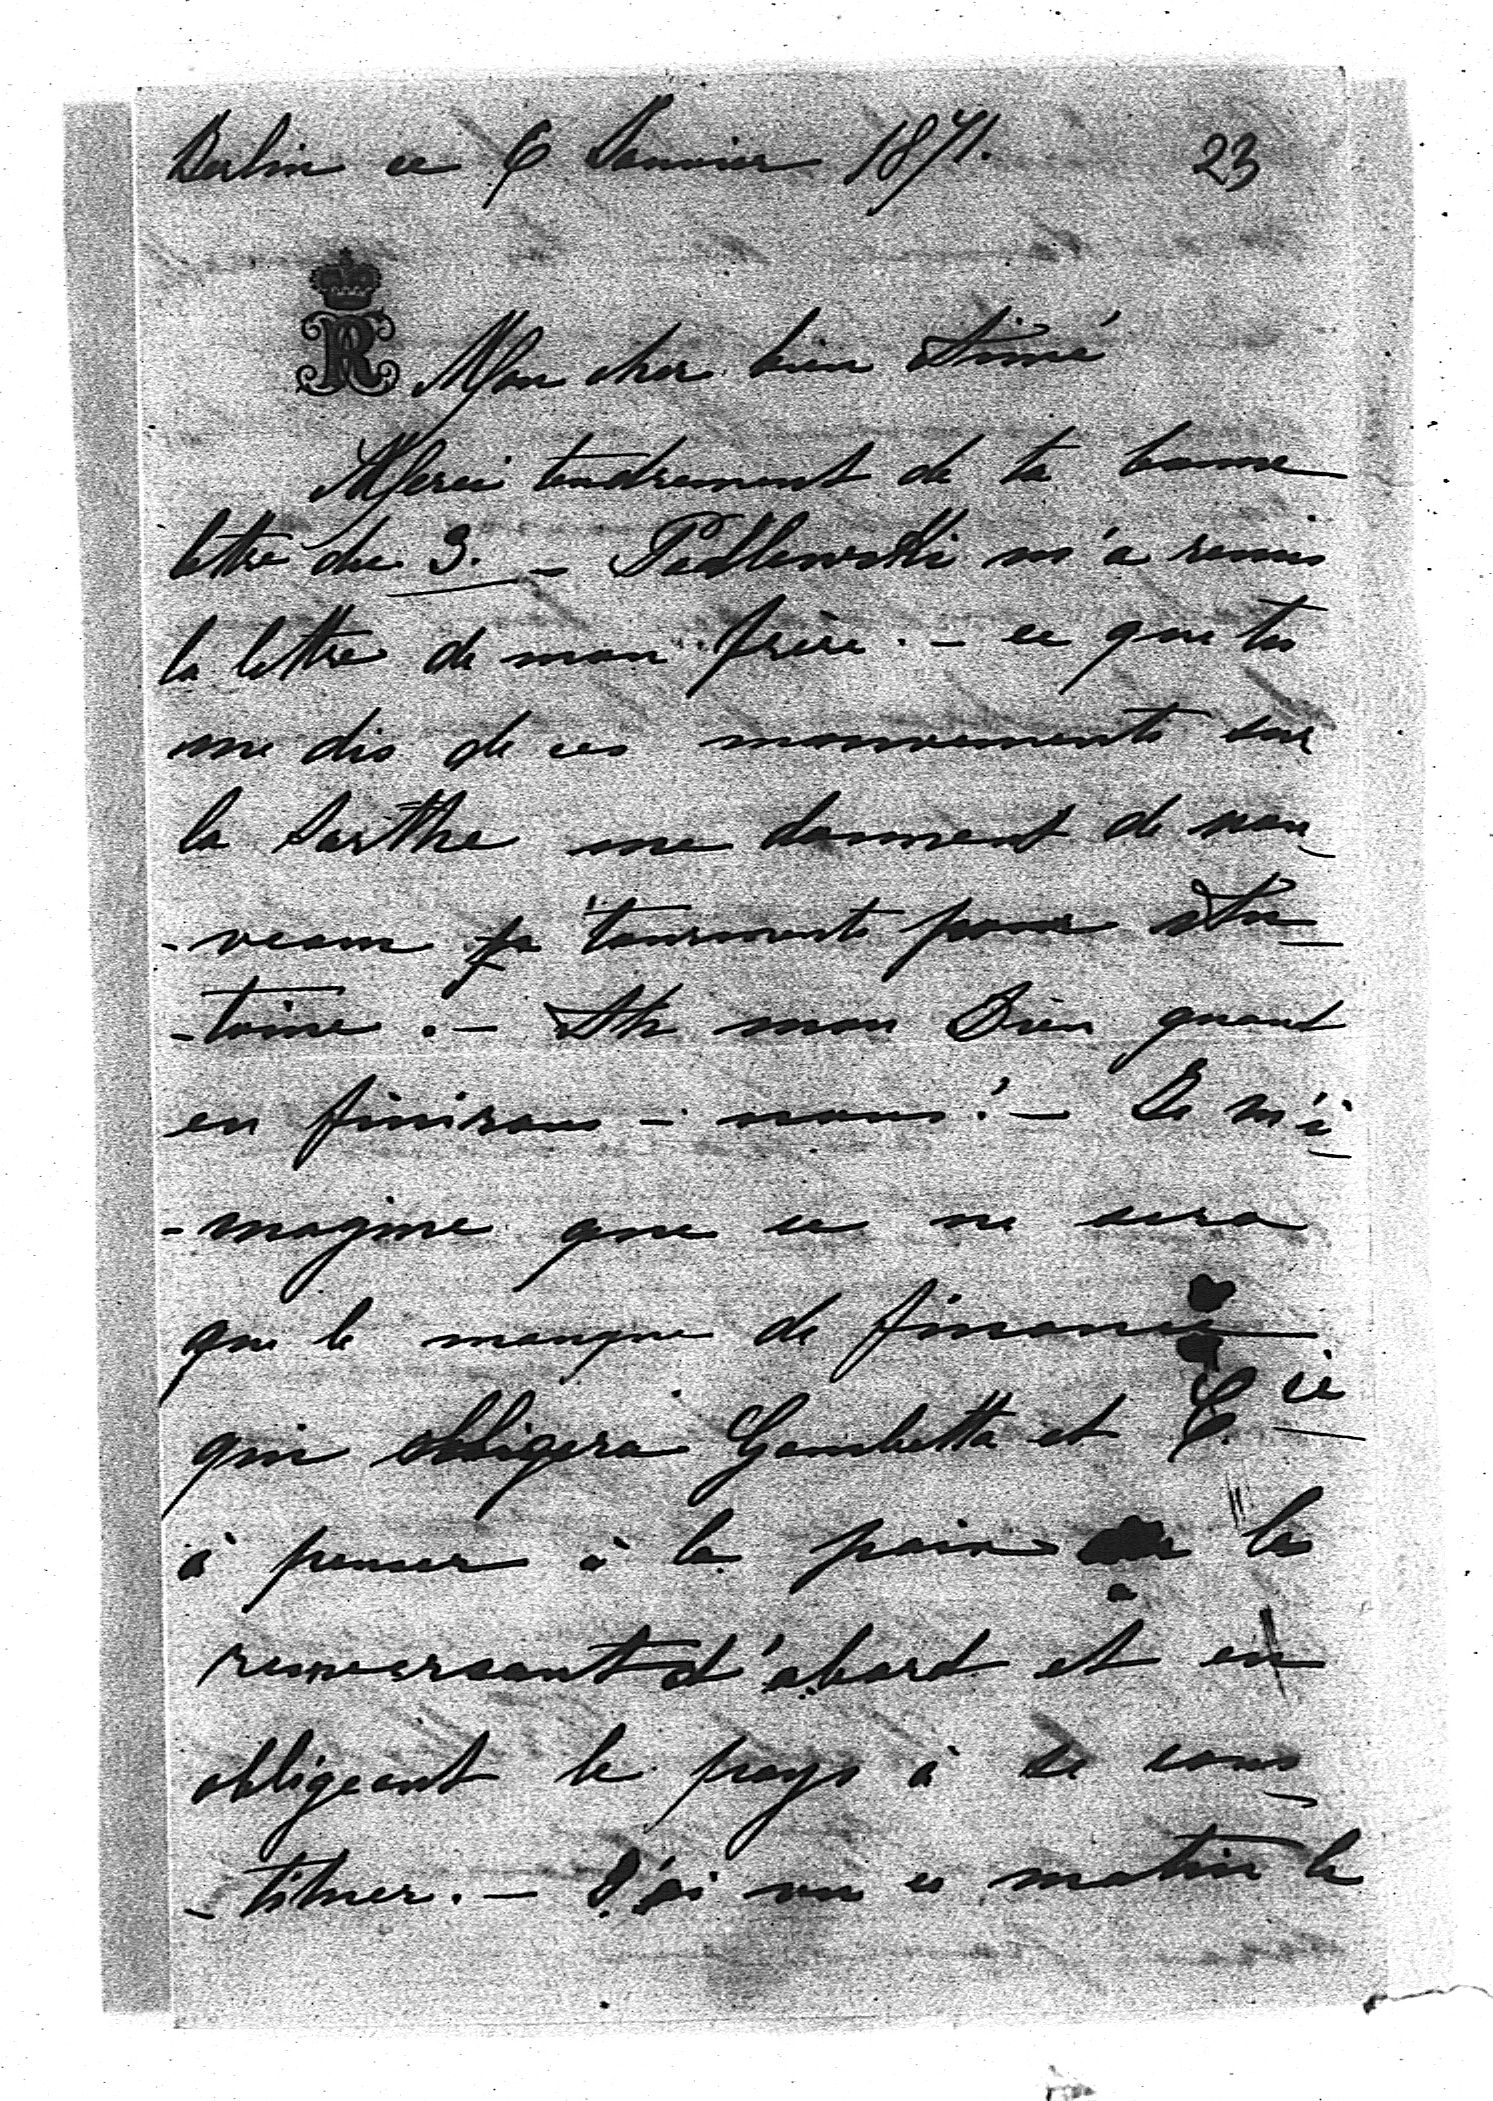 Berlin ce 6 Janvier 1871. 23
Mon cher bien Aimé
Merci tendrement de ta bonne
lettre du 3. – Pedlewski m'a remis
la lettre de mon frère. – ce que tu
me dis de ces mouvements sur
la Sarthe me donnent de nou-
-veau tourments pour An-
-toine. – Ah mon Dieu quand
en finirons – nous! – Je m'i-
-magine que ce ne sera
que le manque de finance
qui obligera Gambetta et C.ie
à penser à la paix les
renversant d'abord et en
obligeant le pays à se cons-
-tituer. – J'ai vu ce matin le